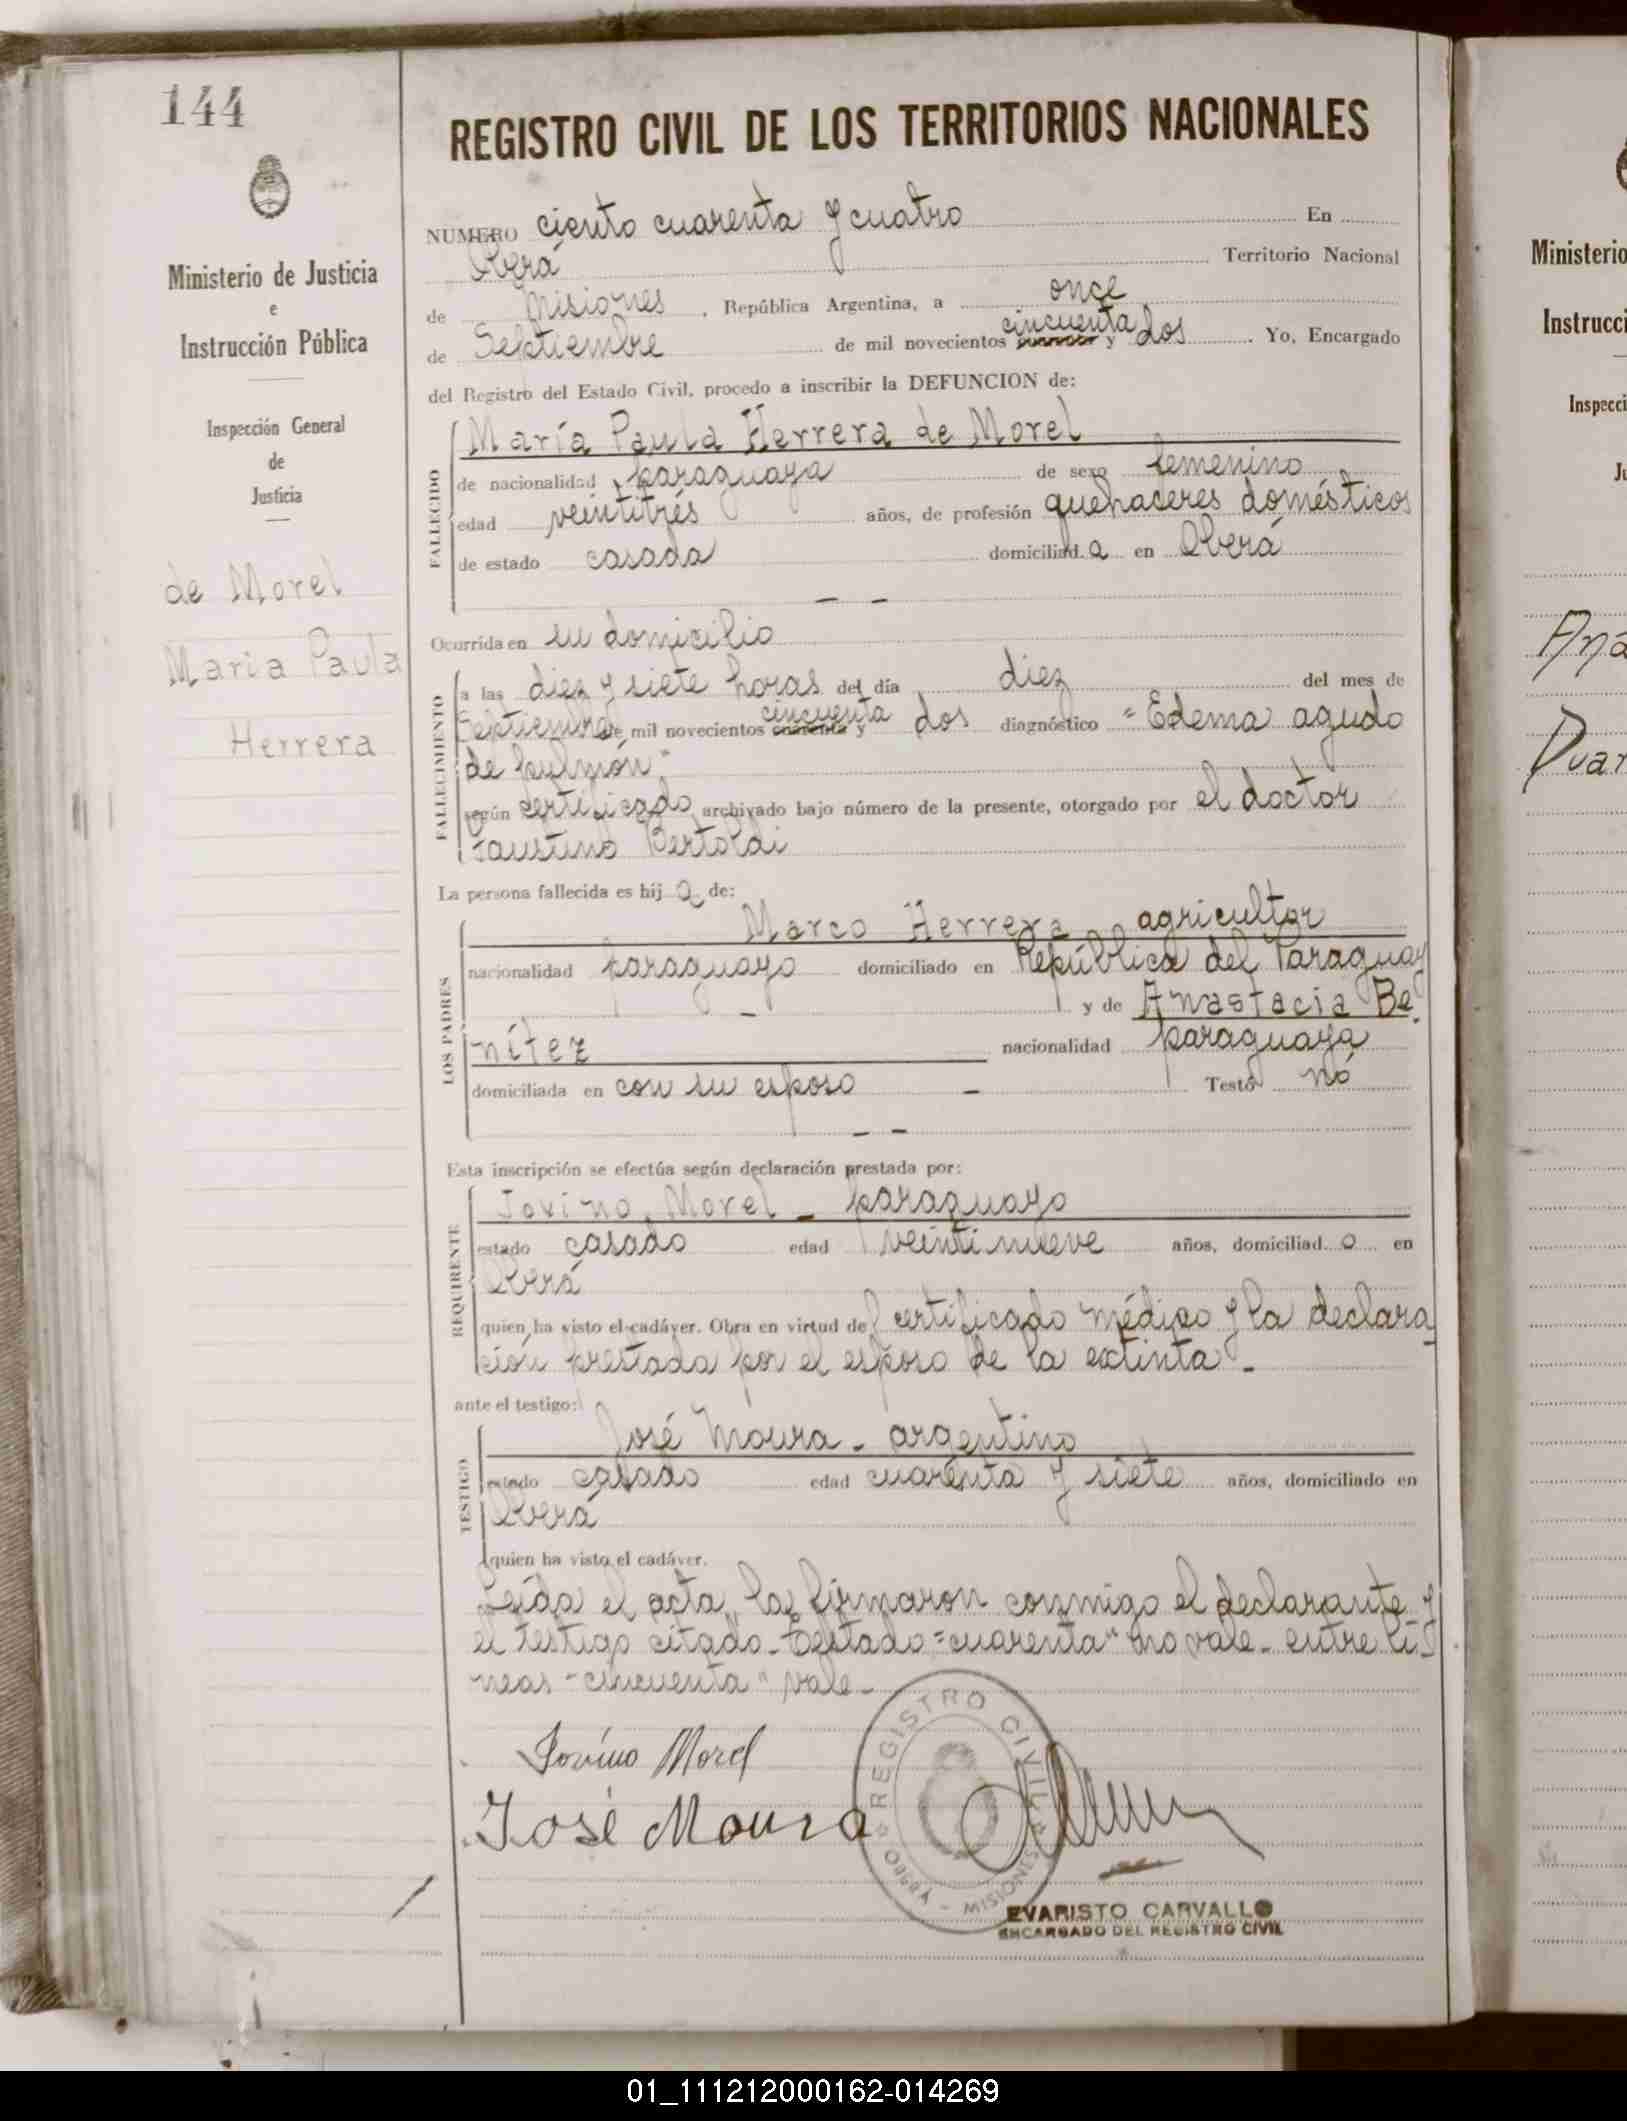 144
Ministerio de Justicia
e
Instrucción Pública
Inspección General
de
Justicia
de Morel
María Paula
Herrera
REGISTRO CIVIL DE LOS TERRITORIOS NACIONALES
NUMERO ciento cuarenta y cuatro En
Oberá Territorio Nacional
de Misiones, República Argentina, a once
cincuenta
de Septiembre de mil novecientos cuarenta y dos. Yo, Encargado
del Registro del Estado Civil, procedo a inscribir la DEFUNCION de:
FALLECIDO
María Paula Herrera de Morel
de nacionalidad paraguaya de sexo femenino
edad veintitrés años, de profesión quehaceres domésticos
de estado casada domiciliada en Oberá
— —
Ocurrida en su domicilio
FALLECIMIENTO
a las diez y siete horas del día diez del mes de
cincuenta
Septiembre de mil novecientos cuarenta y dos diagnóstico "Edema agudo
de pulmón"
según certificado archivado bajo número de la presente, otorgado por el doctor
Faustino Bertoldi
La persona fallecida es hija de:
LOS PADRES
Marco Herrera agricultor
nacionalidad paraguayo domiciliado en República del Paraguay
— y de Anastacia Be
nítez nacionalidad paraguaya
domiciliada en con su esposo — Testó no
— —
Esta inscripción se efectúa según declaración prestada por:
REQUIRENTE
Jovino Morel - paraguayo
estado casado edad veintinueve años, domiciliado en
Oberá
quien ha visto el cadáver. Obra en virtud del certificado médico y la declara
ción prestada por el esposo de la extinta -
ante el testigo:
TESTIGO
José Moura - argentino
estado casado edad cuarenta y siete años, domiciliado en
Oberá
quien ha visto el cadáver.
Leída el acta, la firmaron conmigo el declarante y
el testigo citado - Testado = cuarenta" no vale - entre lí-
neas - cincuenta" vale -
Jovino Morel
José Moura
REGISTRO CIVIL
OBERÁ - MISIONES
EVARISTO CARVALLO
ENCARGADO DEL REGISTRO CIVIL
Ministerio
Instrucci
Inspecci
Ju
Aná
Duar
01_111212000162-014269